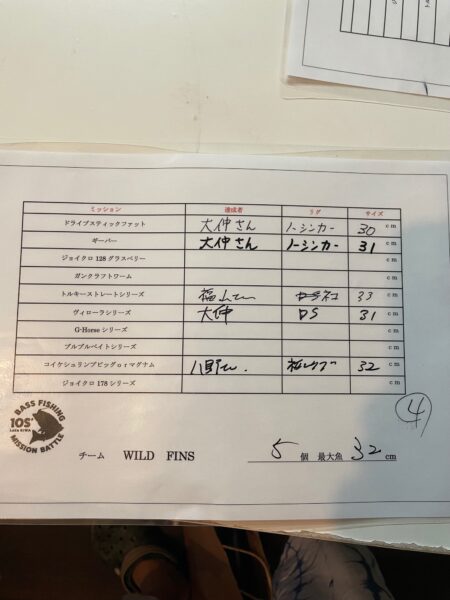 ミッション 達成者 リグ サイズ
ドライブスティックファット 大仲さん ノーシンカー 30 cm
ギーバー 大仲さん ノーシンカー 31 cm
ジョイクロ128グラスベリー cm
ガンクラフトワーム cm
トルキーストレートシリーズ 福山さん ネコ 33 cm
ヴィローラシリーズ 大仲 DS 31 cm
G-Horseシリーズ cm
ブルブルベイトシリーズ cm
コイケシュリンプビッグorマグナム 32 cm
ジョイクロ178シリーズ cm
4
BASS FISHING
10S'
LAKE BIWA
MISSION BATTLE
チーム WILD FINS 5 個 最大魚 32 cm